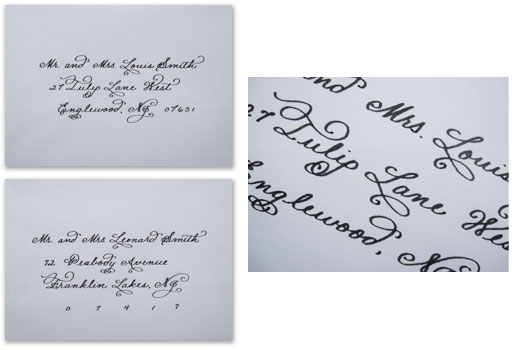 Mr. and Mrs. Louis Smith
27 Tulip Lane West
Englewood, NJ 07631
Mr. and Mrs Leonard Smith
72 Peabody Avenue
Franklin Lakes, NJ
0 7 4 1 7
and Mrs. Louis
27 Tulip Lane Wes
Englewood, NJ